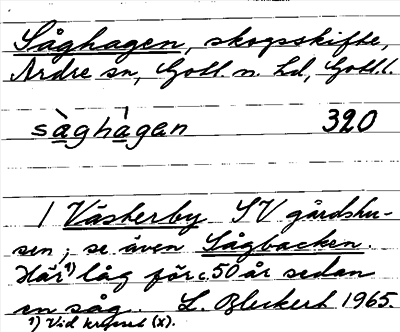 Såghagen, skogsskifte,
Ardre sn, Gotl. n. hd, Gotl. l.
sàghágen 320
I Västerby SV gårdshu-
sen; se även Sågbacken.
Här¹) låg för c. 50 år sedan
en såg. L. Bleckert 1965.
¹) Vid krysset (x).